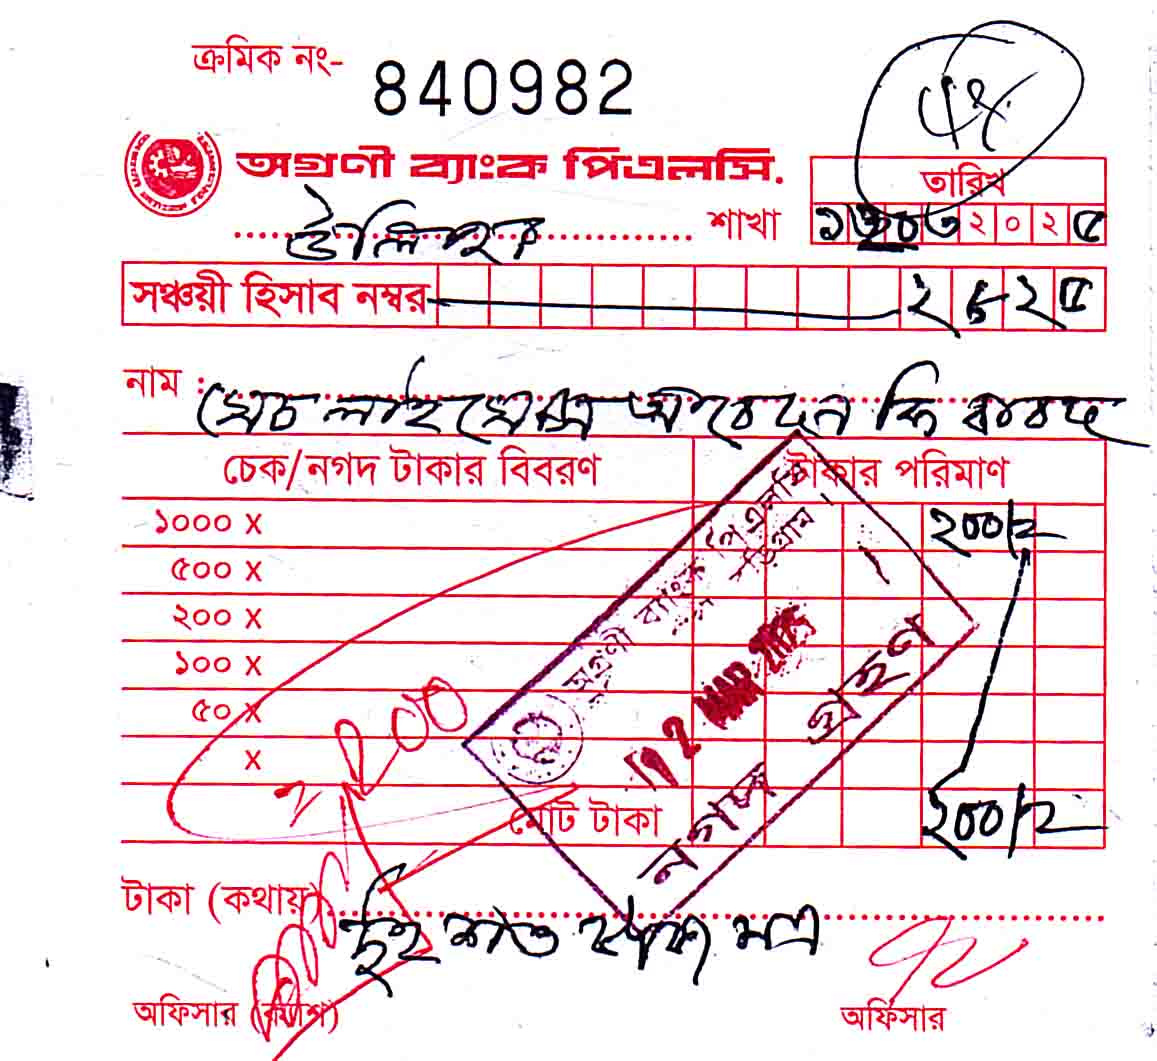 ক্রমিক নং- 840982
অগ্রণী ব্যাংক পিএলসি.
তারিখ
শাখা
২০২৫
সঞ্চয়ী হিসাব নম্বর
নাম :
সেচ লাইসেন্স আবেদন ফি বাবদ
চেক/নগদ টাকার বিবরণ টাকার পরিমাণ
১০০০ X ২০০/২
৫০০ X
২০০ X
১০০ X
৫০ X
X
মোট টাকা ২০০/২
অগ্রণী ব্যাংক পিএলসি
12 MAR 2025
নগদ গ্রহণ
টাকা (কথায়)
দুই শত টাকা মাত্র
অফিসার (ক্যাশ) অফিসার